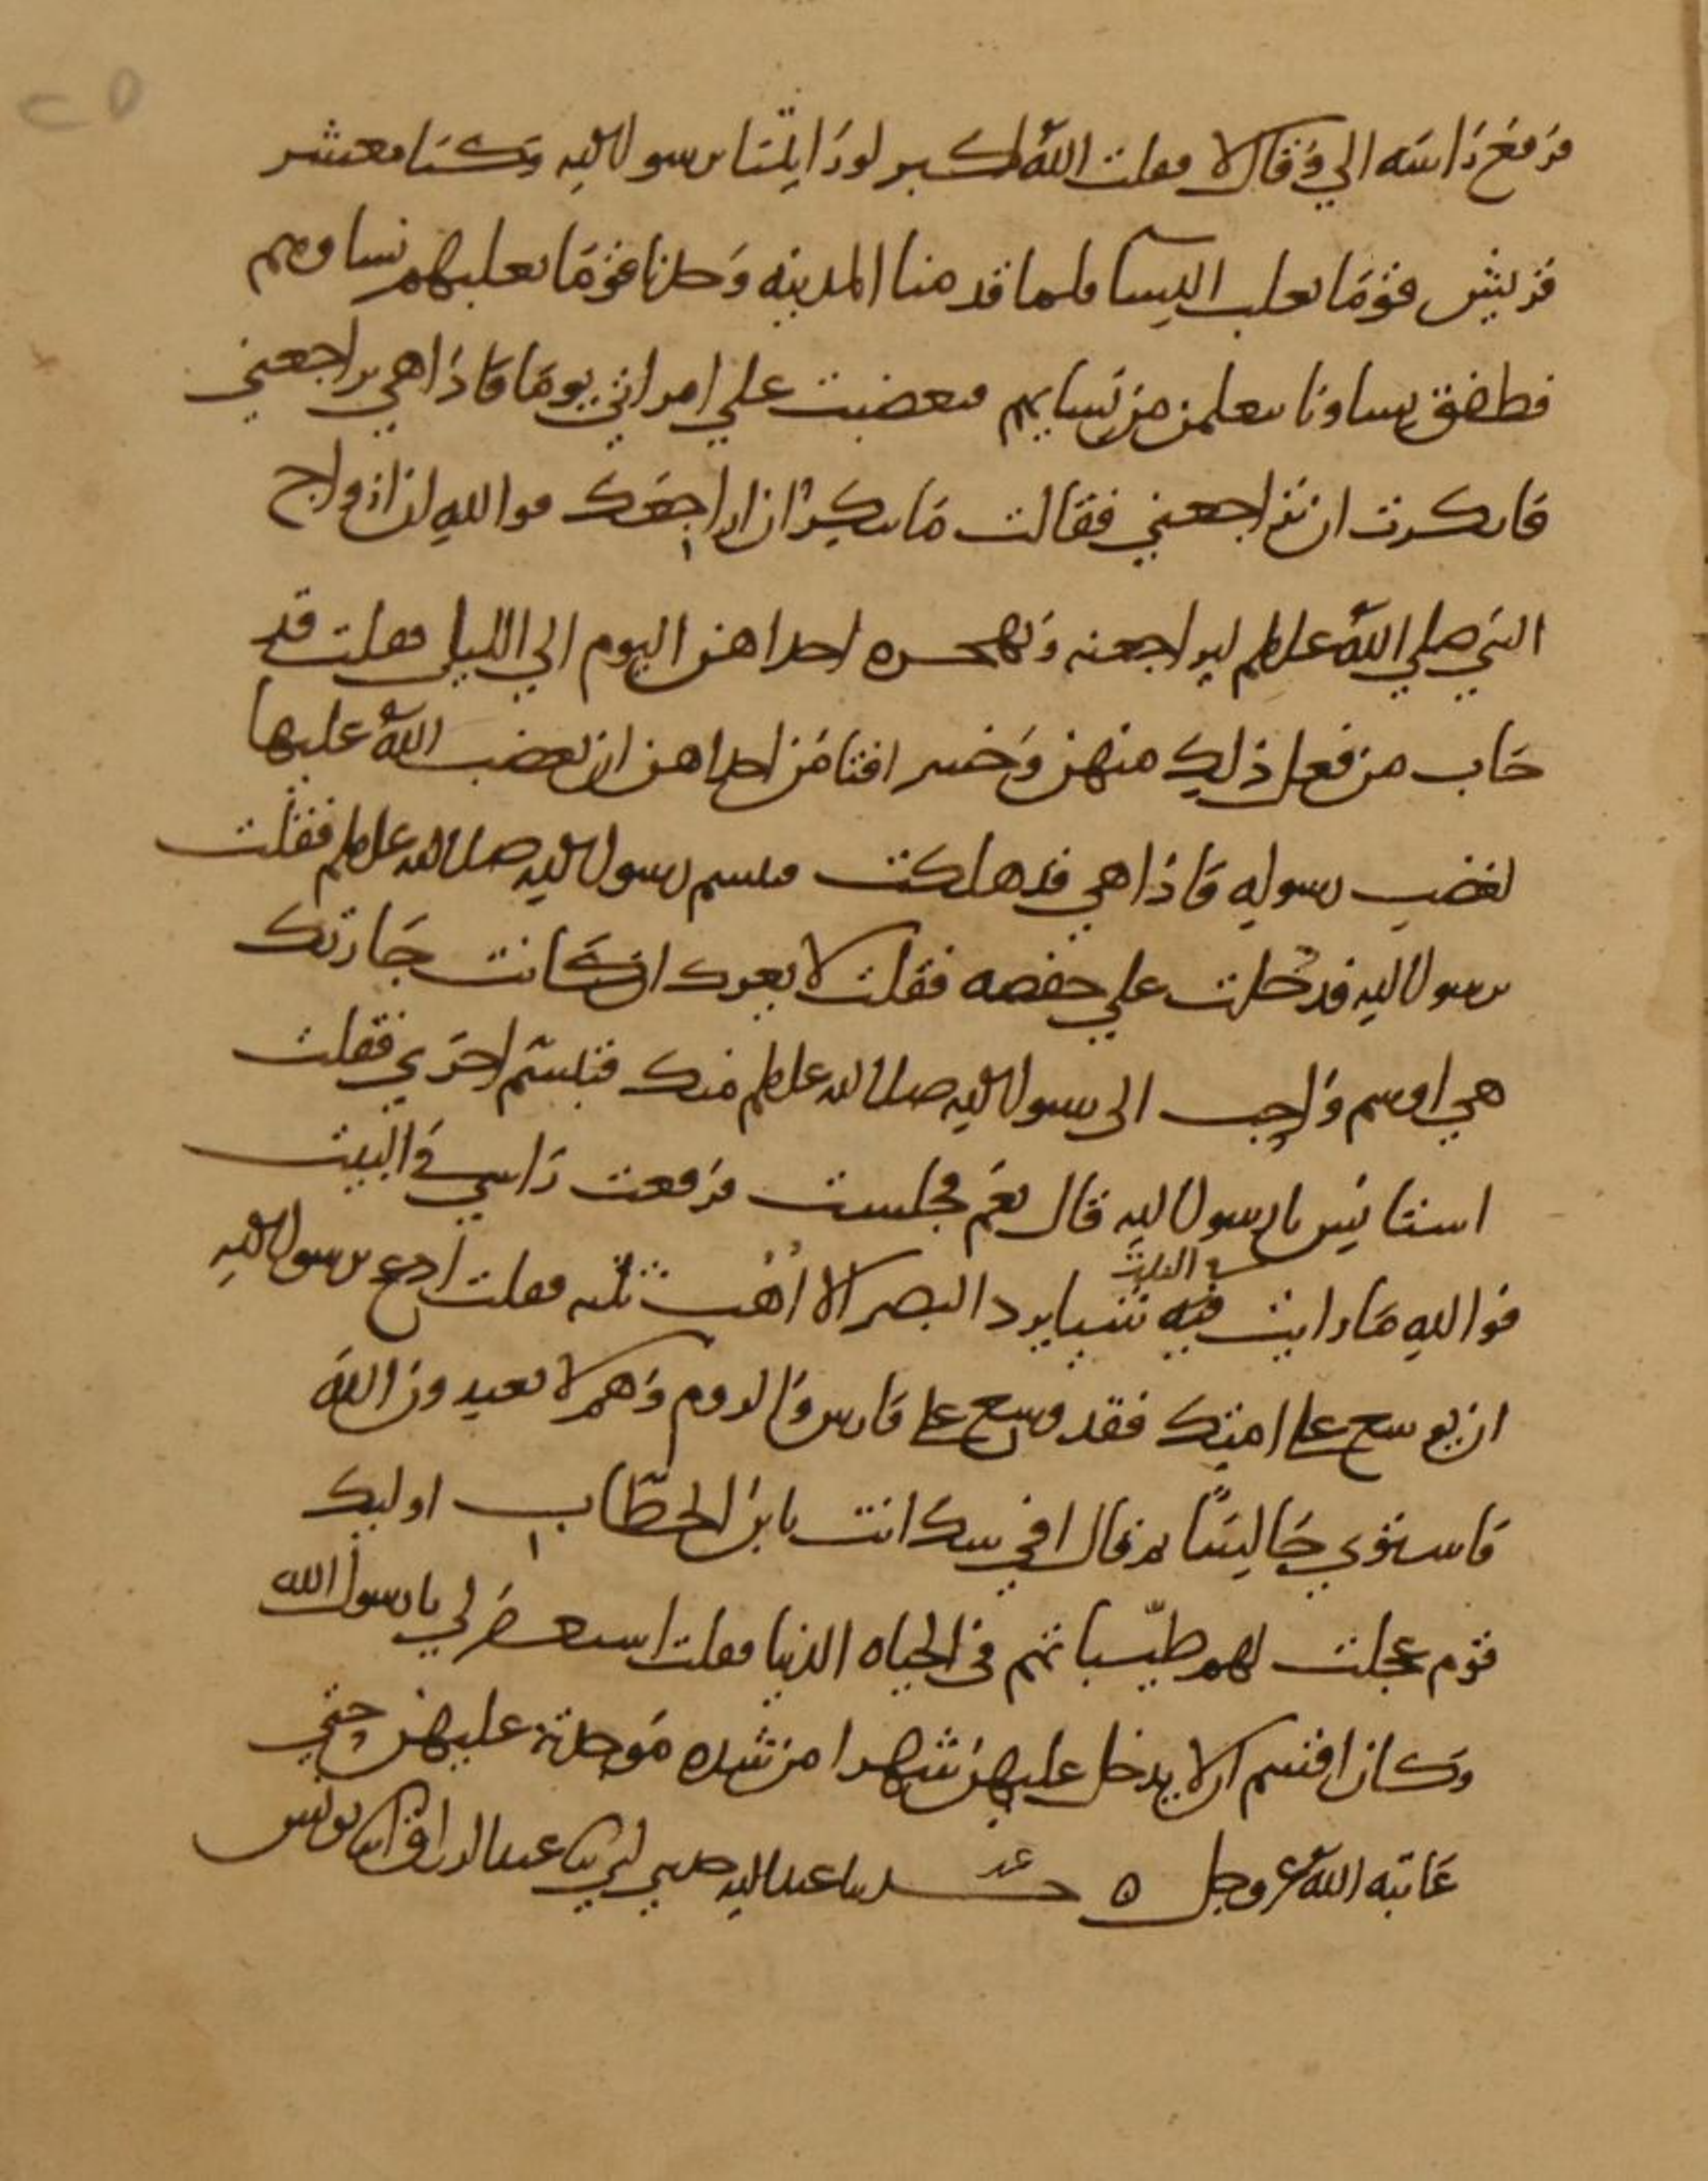 ٢٥
فرفع راسه الي وقال لا فقلت الله اكبر لو رايتنا يرسول الله وكنا معشر
قريش قوما نغلب النسا فلما قدمنا المدينه وجدنا قوما تغلبهم نساوهم
فطفق نساونا يتعلمن من نسايهم فتغضبت علي امراتي يوما فاذا هي تراجعني
فانكرت ان تراجعني فقالت ما تنكر ان اراجعك فوالله ان ازواج
النبي صلي الله علىلم ليراجعنه وتهجره احداهن اليوم الي الليل فقلت قد
خاب من فعل ذلك منهن وخسر افتامن احداهن ان يغضب الله عليها
لغضب رسوله فاذا هي قد هلكت فتبسم رسول الله صلى الله علىلم فقلت
يرسول الله فدخلت علي حفصه فقلت لا يغرك ان كانت جارتك
هي اوسم واحب الى رسول الله صلى الله علىلم منك فتبسم اخري فقلت
استانس يا رسول الله قال نعم فجلست فرفعت راسي في البيت
فوالله ما رايت فيه شيا يرد البصر الا اهب ثلثه فقلت ادع يرسول الله
في البيت
ان يوسع على امتك فقد وسع على فارس والروم وهم لا يعبدون الله
فاستوي جالسا ثم قال افي شك انت يا بن الخطاب اوليك
قوم عجلت لهم طيباتهم في الحياه الدنيا فقلت استغفر لي يا رسول الله
وكان اقسم ان لا يدخل عليهن شهرا من شده موجدته عليهن حتي
عاتبه الله عز وجل ٥ حدثنا عبد الله حدثني ابي ثنا عبد الرزاق انا يونس